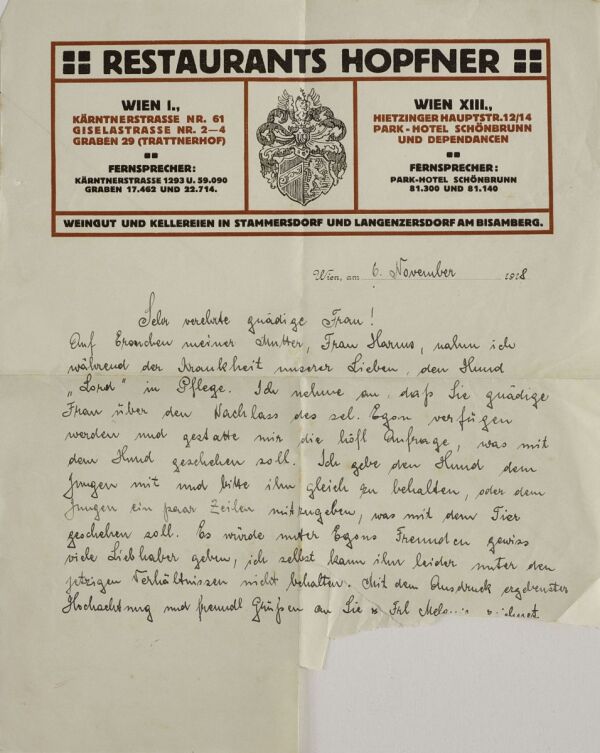 RESTAURANTS HOPFNER
WIEN I.,
KÄRNTNERSTRASSE NR. 61
GISELASTRASSE NR. 2–4
GRABEN 29 (TRATTNERHOF)
FERNSPRECHER:
KÄRNTNERSTRASSE 1293 U. 59.090
GRABEN 17.462 UND 22.714.
WIEN XIII.,
HIETZINGER HAUPTSTR. 12/14
PARK-HOTEL SCHÖNBRUNN
UND DEPENDANCEN
FERNSPRECHER:
PARK-HOTEL SCHÖNBRUNN
81.300 UND 81.140
WEINGUT UND KELLEREIEN IN STAMMERSDORF UND LANGENZERSDORF AM BISAMBERG.
Wien, am 6. November 1918
Sehr verehrte gnädige Frau!
Auf Ersuchen meiner Mutter, Frau Harms, nahm ich
während der Krankheit unserer Lieben, den Hund
„Lord" in Pflege. Ich nehme an, daß Sie gnädige
Frau über den Nachlass des sel. Egon verfügen
werden und gestatte mir die höfl Anfrage, was mit
dem Hund geschehen soll. Ich gebe den Hund dem
Jungen mit und bitte ihn gleich zu behalten, oder dem
Jungen ein paar Zeilen mitzugeben, was mit dem Tier
geschehen soll. Es würde unter Egons Freunden gewiss
viele Liebhaber geben, ich selbst kann ihn leider unter den
jetzigen Verhältnissen nicht behalten. Mit dem Ausdruck ergebenster
Hochachtung und freundl Grüßen an Sie u Frl